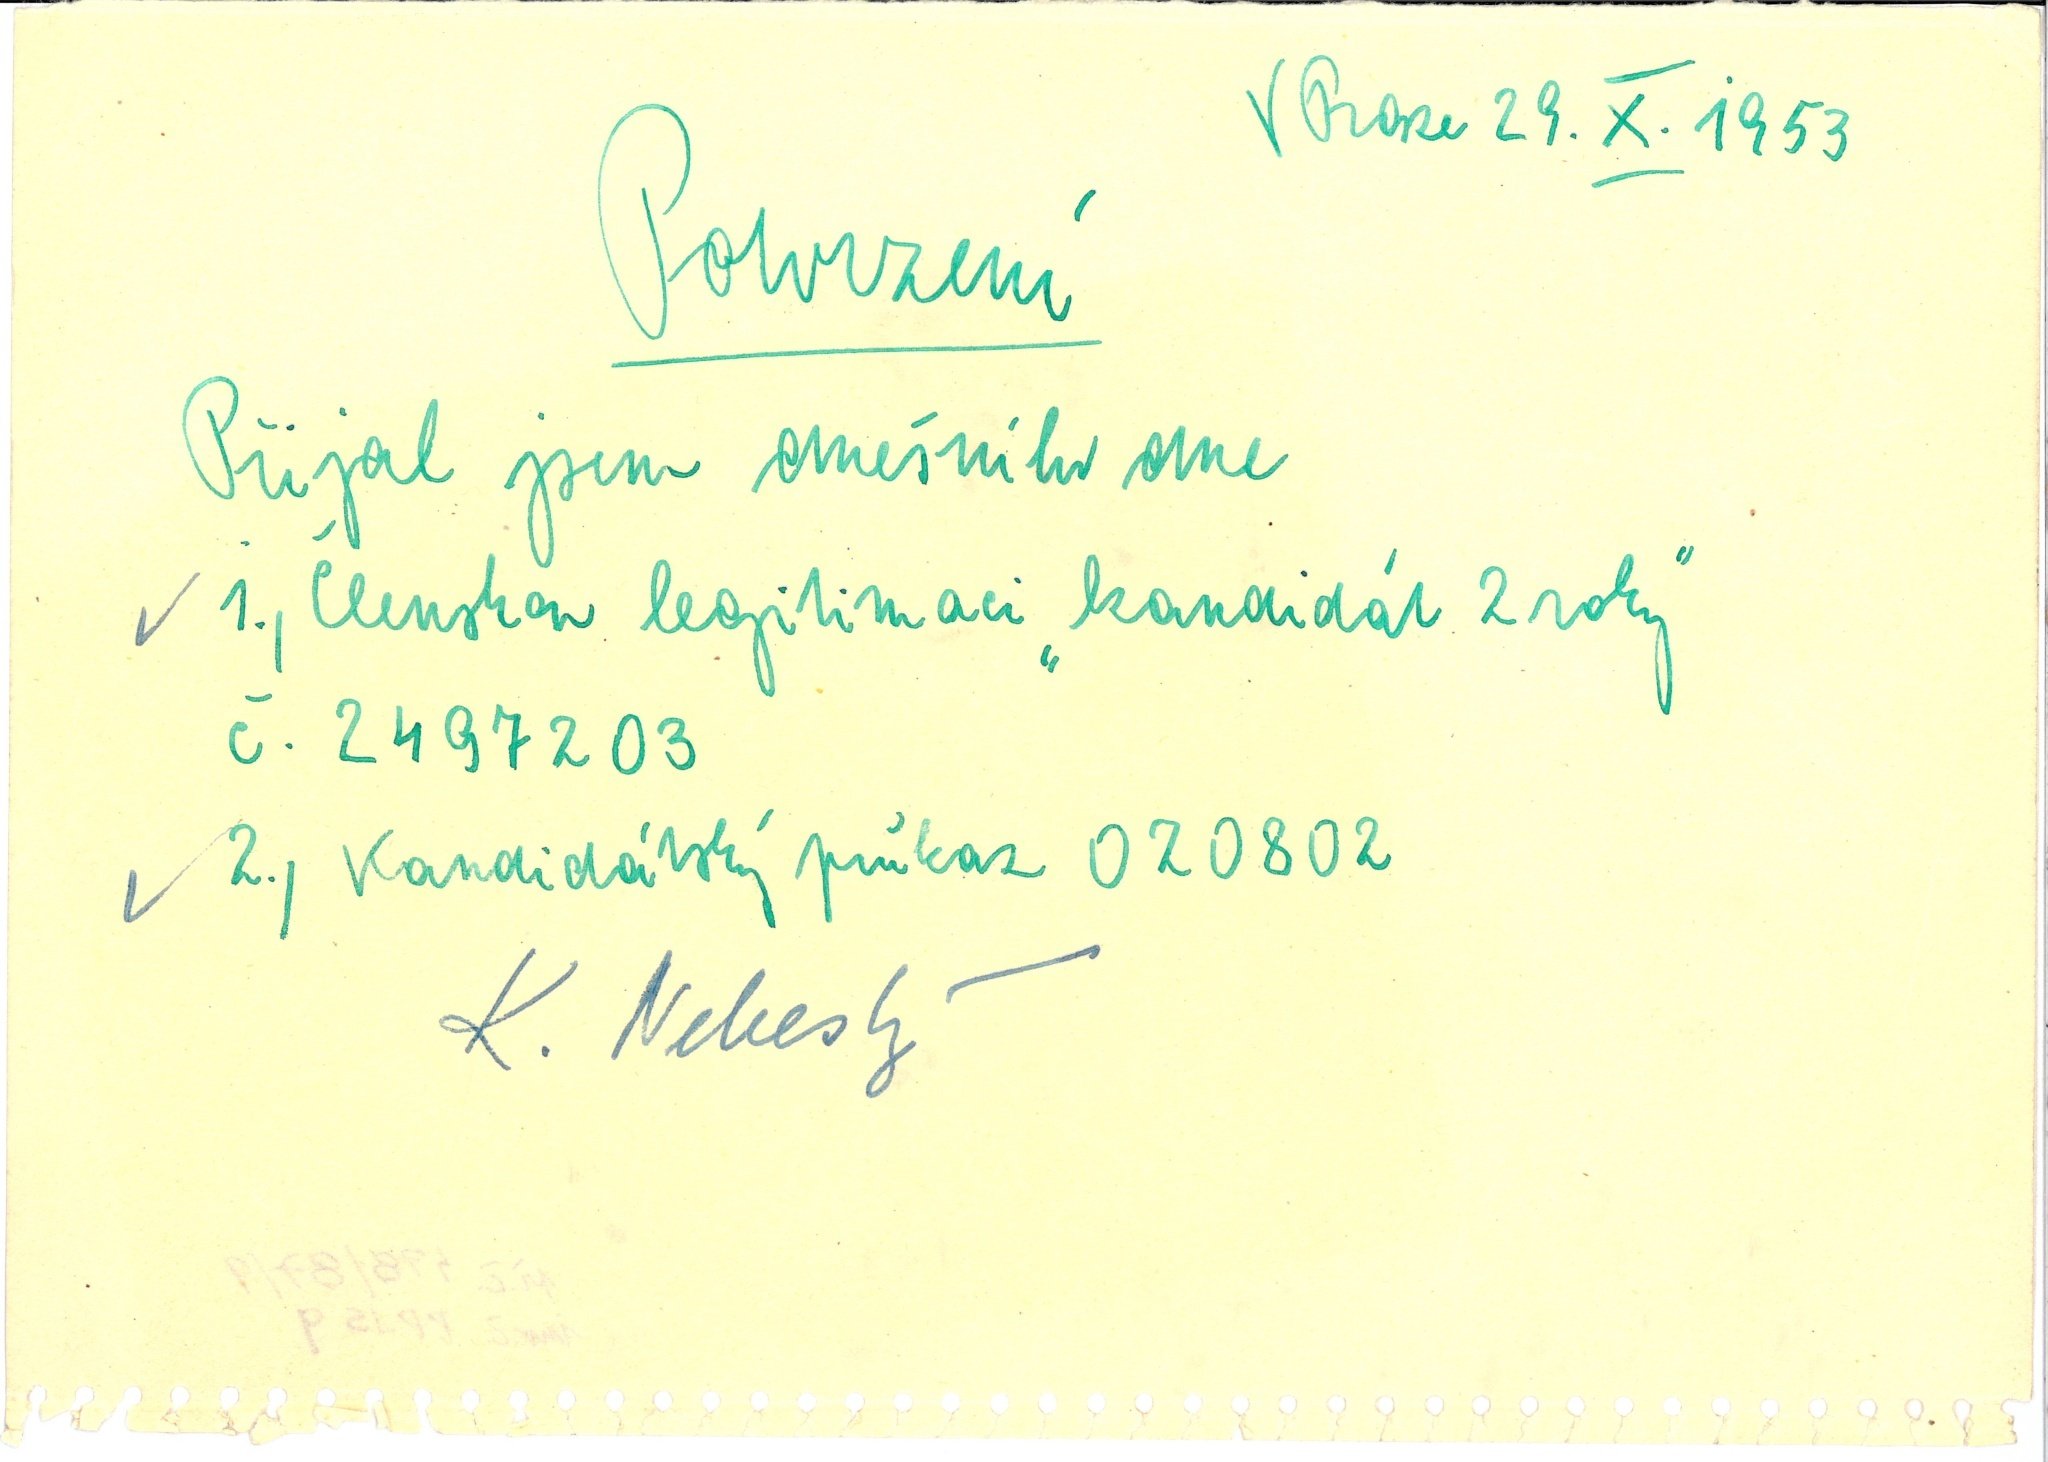 V Praze 29. X. 1953
Potvrzení
Přijal jsem dnešního dne
1., Členskou legitimaci „kandidát 2 roky“
č. 2497203
2., Kandidátský průkaz 020802
K. Nebeský